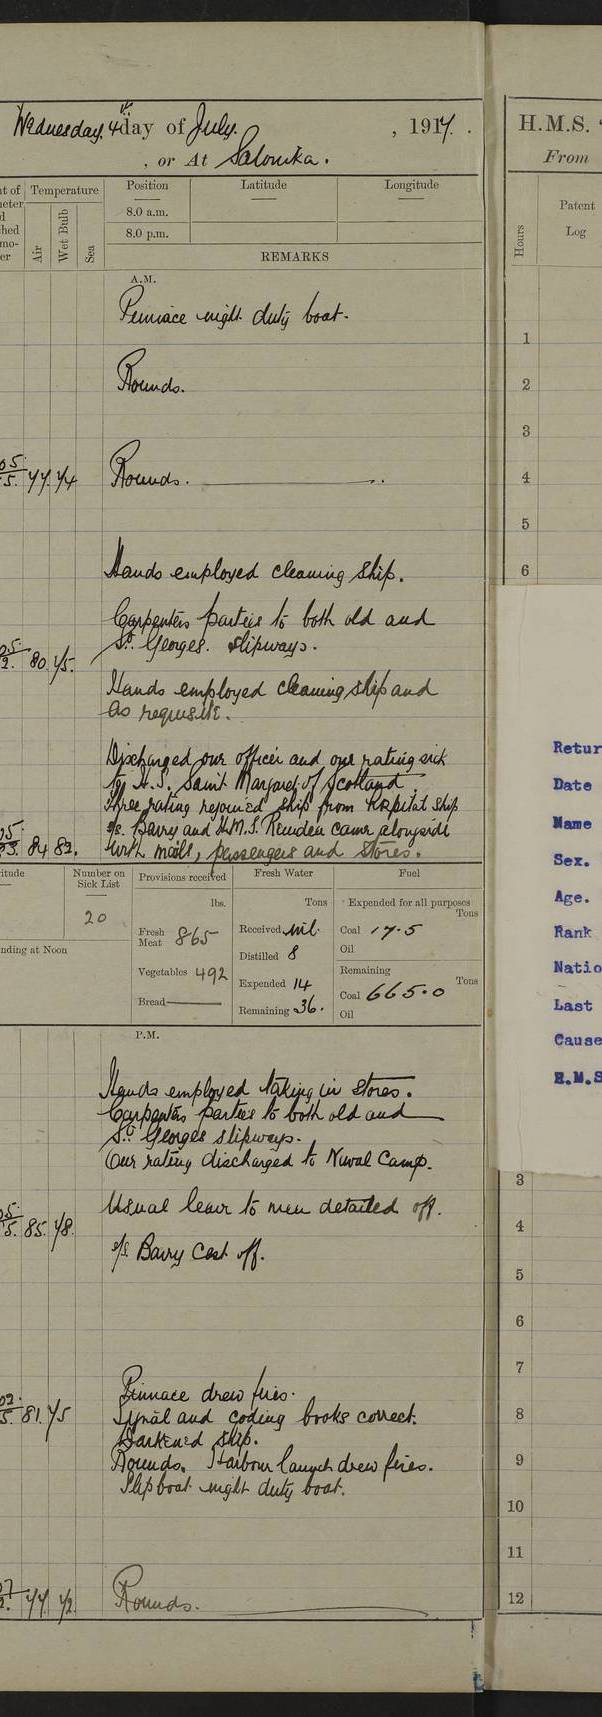 Wednesday, 4th day of July. , 1917.
, or At Salonika.
Temperature
Air
Wet Bulb
Sea
Position
Latitude
Longitude
8.0 a.m.
8.0 p.m.
REMARKS
A.M.
Pinnace night duty boat.
Rounds.
77. 74
Rounds.
Hands employed cleaning ship.
Carpenters parties to both old and
St. Georges. slipways.
80. 75.
Hands employed cleaning ship and
as requisite.
Discharged one officer and one rating sick
to H.S. Saint Margaret of Scotland.
Three rating rejoined ship from Hospital ship
s/s. Barry and H.M.S. came alongside
84 82.
with mails, passengers and stores.
Number on
Sick List
20
Provisions received
lbs.
Fresh
Meat 865
Vegetables 492
Bread
Fresh Water
Tons
Received nil.
Distilled 8
Expended 14
Remaining 36.
Fuel
Expended for all purposes
Tons
Coal 17.5
Oil
Remaining
Tons
Coal 665.0
Oil
nding at Noon
P.M.
Hands employed taking in stores.
Carpenters parties to both old and
St. Georges slipways.
One rating discharged to Naval Camp.
Usual leave to men detailed off.
85. 78.
s/s. Barry cast off.
Pinnace drew fires.
81. 75
Signal and coding books correct.
Darkened ship.
Rounds. Harbour launch drew fires.
Slipboat night duty boat.
77. 72
Rounds.
H.M.S.
From
Hours
Patent
Log
1
2
3
4
5
6
Retur
Date
Name
Sex.
Age.
Rank
Natio
Last
Cause
H.M.S
3
4
5
6
7
8
9
10
11
12